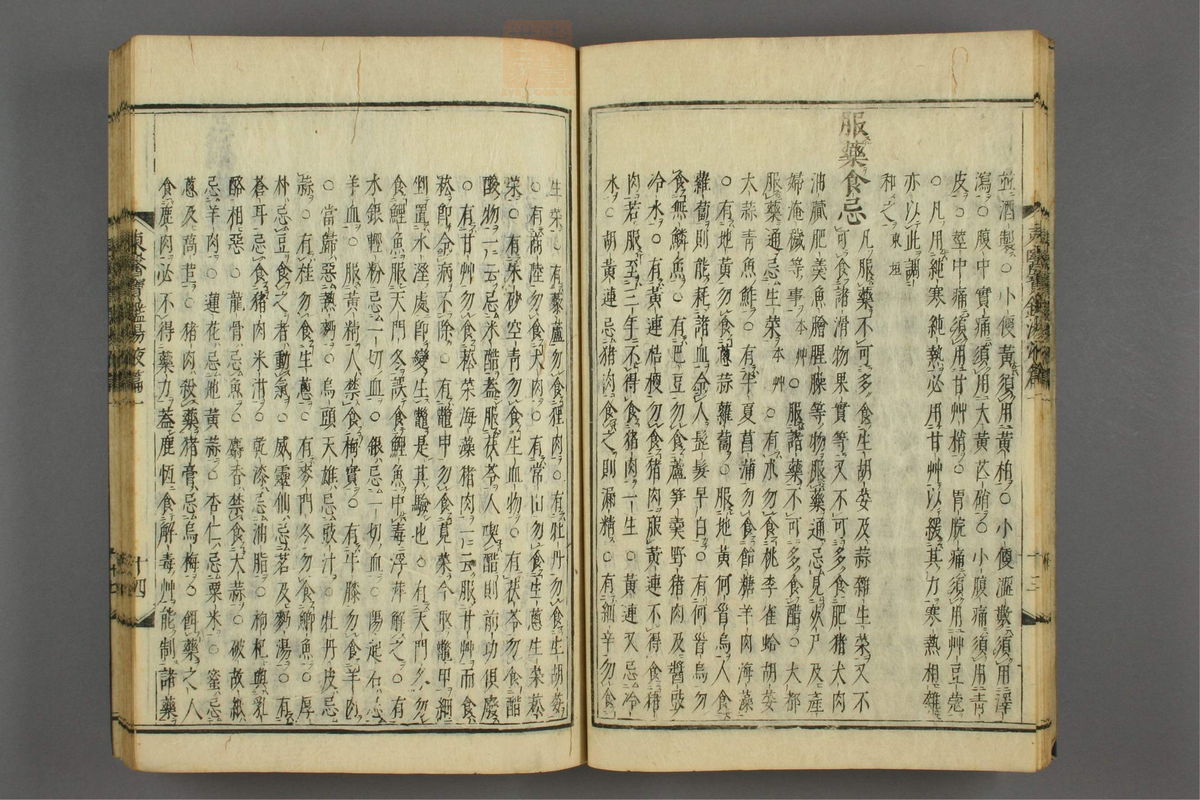 並酒製○小便黃須用黃柏○小便澁數須用澤
瀉○腹中實痛須用大黃芒硝○小腹痛須用靑
皮○莖中痛須用甘艸梢○胃脘痛須用艸豆蔲
○凡用純寒純熱必用甘艸以緩其力寒熱相雜
亦以此調
和之東垣
服藥食忌
凡服藥不可多食生胡荽及蒜雜生菜又不
可食諸滑物果實等又不可多食肥猪犬肉
油膩肥羹魚膾腥臊等物服藥通忌見死尸及産
婦淹穢等事本艸○服諸藥不可多食醋○大都
服藥通忌生菜本艸○有朮勿食桃李雀蛤胡荽
大蒜靑魚鮓○有半夏菖蒲勿食飴糖羊肉海藻
○有地黃勿食蔥蒜蘿蔔○服地黃何首烏人食
蘿蔔則能耗諸血令人髭髮早白○有何首烏勿
食無鱗魚○有巴豆勿食蘆笋羹野猪肉及醬豉
冷水○有黃連桔梗勿食猪肉服黃連不得食猪
肉若服至三年不得食猪肉一生○黃連又忌冷
水○胡黃連忌猪肉食之則漏精○有細辛勿食
生菜○有藜蘆勿食狸肉○有牡丹勿食生胡荽
○有商陸勿食犬肉○有常山勿食生蔥生菜菘
菜○有朱砂空靑勿食生血物○有茯苓勿食醋
酸物一云忌米醋盖服茯苓人喫醋則前功俱廢
○有甘艸勿食菘菜海藻猪肉一云服甘艸而食
菘卽令病不除○有鼈甲勿食莧菜今取鼈甲細
剉置水溼處卽變生鼈是其驗也○有天門冬勿
食鯉魚服天門冬誤食鯉魚中毒浮萍解之○有
水銀輕粉忌一切血○銀忌一切血○陽起石忌
羊血○服黃精人禁食梅實○有牛膝勿食羊肉
○當歸惡熱麪○烏頭天雄忌豉汁○牡丹皮忌
蒜○有桂勿食生蔥○有麥門冬勿食鯽魚○厚
朴忌豆食之者動氣○威靈仙忌茗及麪湯○有
蒼耳忌食猪肉米泔○乾漆忌油脂○柿杞與乳
酪相惡○龍骨忌魚○麝香禁食大蒜○破故紙
忌羊肉○蓮花忌地黃蒜○杏仁忌粟米○蜜忌
蔥及萵苣○猪肉殺藥猪膏忌烏梅○餌藥之人
食鹿肉必不得藥力盖鹿恆食解毒艸能制諸藥
東醫寶鑑湯液篇一
十四